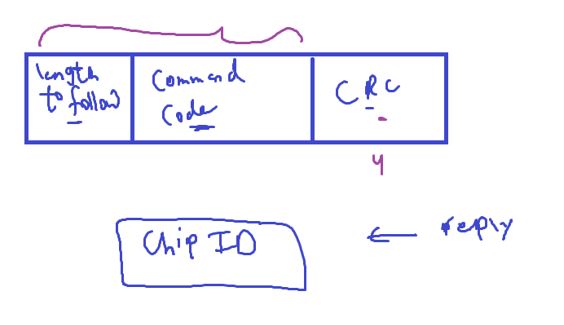 length
to follow
Command
Code
CRC
4
Chip ID
reply